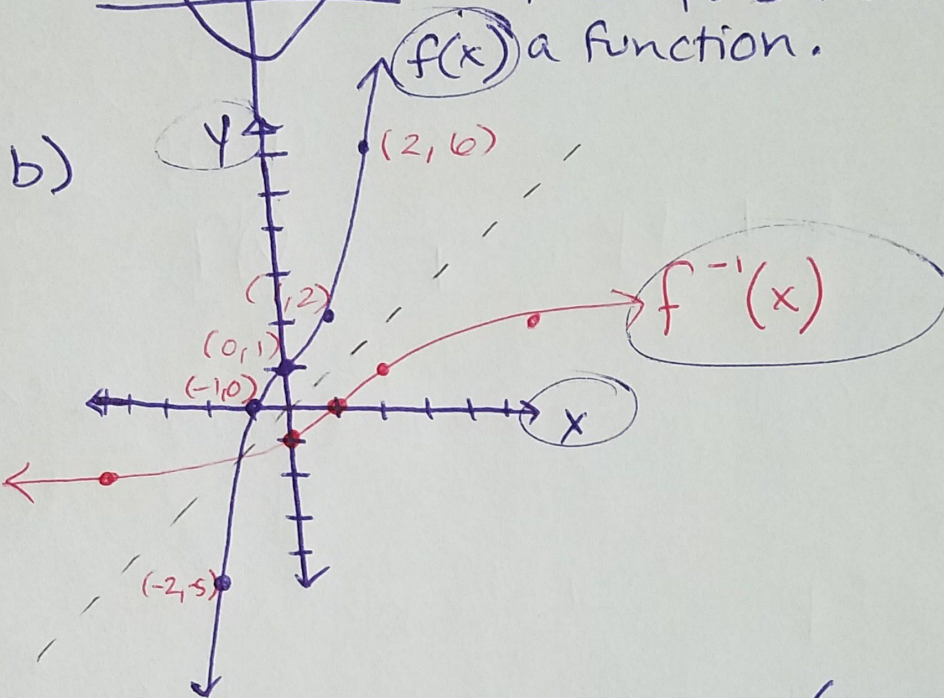 f(x) a function.
b)
y
(2,6)
( ,2)
f⁻¹(x)
(0,1)
(-1,0)
x
(-2,-5)